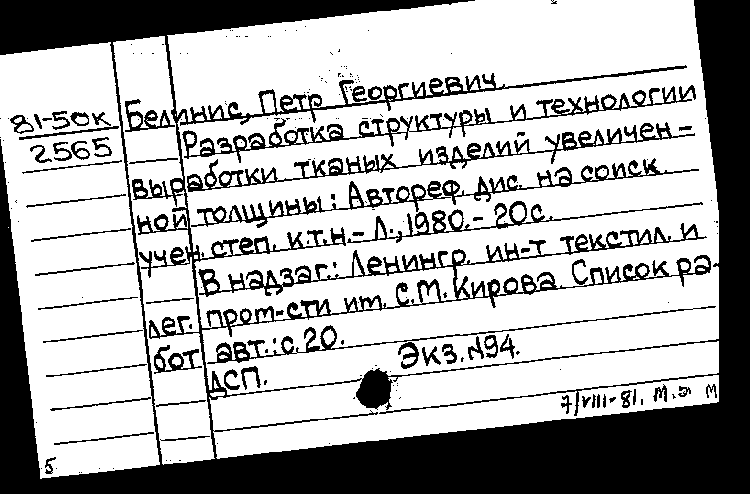 81-50к
2565
Белинис, Петр Георгиевич.
Разработка структуры и технологии
выработки тканых изделий увеличен-
ной толщины: Автореф. дис. на соиск.
учен. степ. к.т.н.- Л., 1980.- 20с.
В надзаг.: Ленингр. ин-т текстил. и
лег. пром-сти им. С.М.Кирова. Список ра-
бот авт.: с.20.
Экз.№94.
ДСП.
7/VIII-81. М.
5